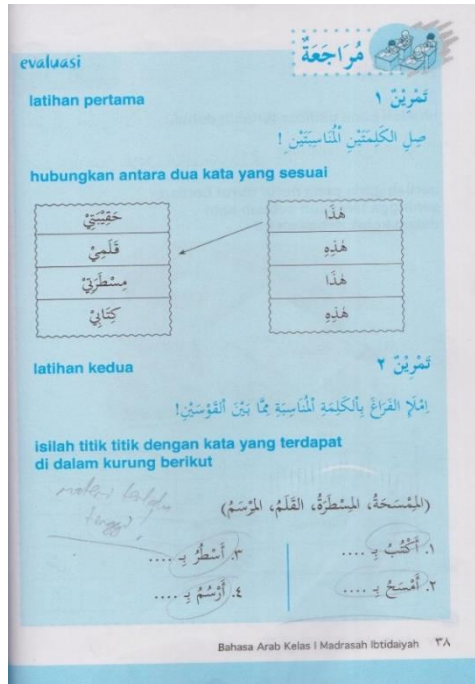 evaluasi
مُرَاجَعَةٌ
latihan pertama
تَمْرِيْنٌ ١
صِلِ الكَلِمَتَيْنِ الْمُنَاسِبَتَيْنِ !
hubungkan antara dua kata yang sesuai
هٰذَا
هٰذِهِ
هٰذَا
هٰذِهِ
حَقِيْبَتِيْ
قَلَمِيْ
مِسْطَرَتِيْ
كِتَابِيْ
latihan kedua
تَمْرِيْنٌ ٢
اِمْلَإِ الفَرَاغَ بِالْكَلِمَةِ الْمُنَاسِبَةِ مِمَّا بَيْنَ الْقَوْسَيْنِ!
isilah titik titik dengan kata yang terdapat
di dalam kurung berikut
(المِمْسَحَةُ، المِسْطَرَةُ، القَلَمُ، المَرْسَمُ)
١. أَكْتُبُ بِـ ....
٢. أَمْسَحُ بِـ ....
٣. أَسْطُرُ بِـ ....
٤. أَرْسُمُ بِـ ....
materi
tinggi
Bahasa Arab Kelas I Madrasah Ibtidaiyah ٣٨